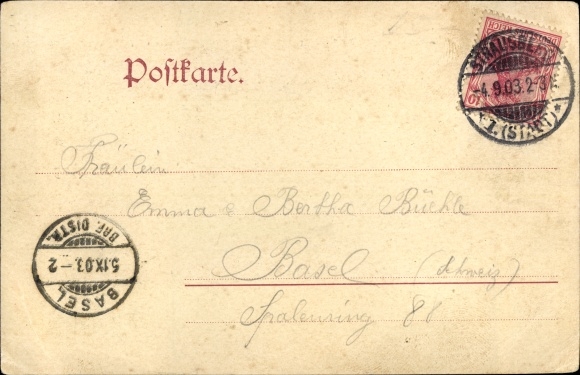 Postkarte.
STRASSBURG
-4.9.03.2-3
* 1. (STADT) *
Fräulein
Emma & Bertha Büchle
Basel (Schweiz)
Spalenring 81
BASEL
5.IX.03.-2
BRF. DISTR.